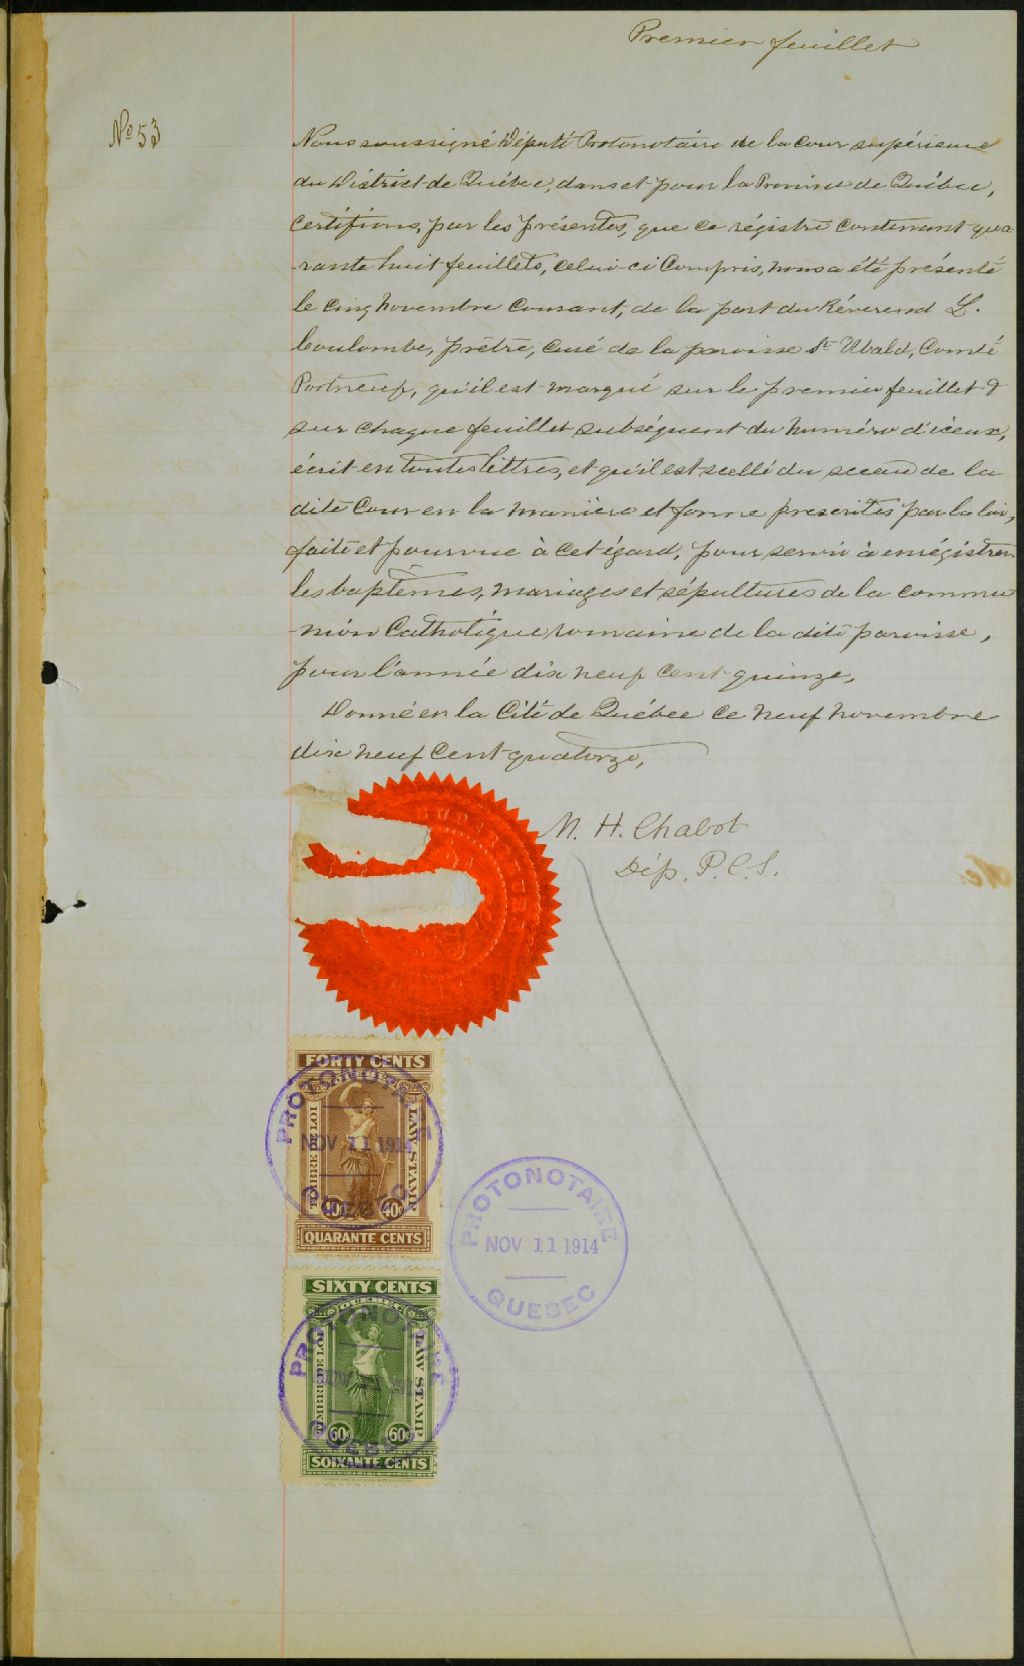 Premier feuillet
No 53
Nous soussigné Député Protonotaire de la Cour supérieure
du District de Québec, dans et pour la Province de Québec,
certifions, par les présentes, que ce régistre contenant qua-
-rante huit feuillets, celui-ci Compris, nous a été présenté
le cinq Novembre Courant, de la part du Révérend L.
Coulombe, prêtre, Curé de la paroisse St Ubald, Comté
Portneuf, qu'il est marqué sur le premier feuillet &
sur chaque feuillet subséquent du numéro d'iceux,
écrit en toutes lettres, et qu'il est scellé du sceau de la
dite Cour en la manière et forme prescrites par la loi,
faite et pourvue à cet égard, pour servir à enrégistrer
les baptêmes, mariages et sépultures de la commu
-nion Catholique romaine de la dite paroisse,
pour l'année dix neuf Cent quinze,
Donné en la Cité de Québec ce neuf novembre
dix neuf Cent quatorze,
N. H. Chabot
Dép. P.C.S.
FORTY CENTS
TIMBRE DE LOI
LAW STAMP
40c 40c
QUARANTE CENTS
PROTONOTAIRE
NOV 11 1914
QUEBEC
PROTONOTAIRE
NOV 11 1914
QUEBEC
SIXTY CENTS
QUEBEC
TIMBRE DE LOI
LAW STAMP
60c 60c
SOIXANTE CENTS
PROTONOTAIRE
QUEBEC